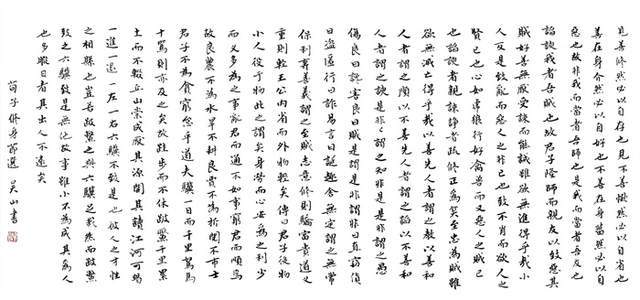 見善脩然必以自存也見不善愀然必以自省也
善在身介然必以自好也不善在身菑然必以自
惡也故非我而當者吾師也是我而當者吾友也
諂諛我者吾賊也故君子隆師而親友以致惡其
賊好善無厭受諫而能誡雖欲無進得乎哉小
人反是致亂而惡人之非己也致不肖而欲人之
賢己也心如虎狼行如禽獸而又惡人之賊己
也諂諛者親諫諍者疏修正為笑至忠為賊雖
欲無滅亡得乎哉以善先人者謂之教以善和
人者謂之順以不善先人者謂之諂以不善和
人者謂之諛是是非非謂之知非是是非謂之愚
傷良曰讒害良曰賊是謂是非謂非曰直竊貨
曰盜匿行曰詐易言曰誕趣舍無定謂之無常
保利棄義謂之至賊志意修則驕富貴道義
重則輕王公內省而外物輕矣傳曰君子役物
小人役于物此之謂矣身勞而心安為之利少
而義多為之事亂君而通不如事窮君而順焉
故良農不為水旱不耕良賈不為折閱不市士
君子不為貧窮怠乎道夫驥一日而千里駑馬
十駕則亦及之矣故跬步而不休跛鱉千里累
土而不輟丘山崇成厭其源開其瀆江河可竭
一進一退一左一右六驥不致是也彼人之才性
之相縣也豈若跛鱉之與六驥足哉然而跛鱉
致之六驥致是無他故事雖小不為成其為人
也多暇日者其出人不遠矣
荀子修身節選 吳山書